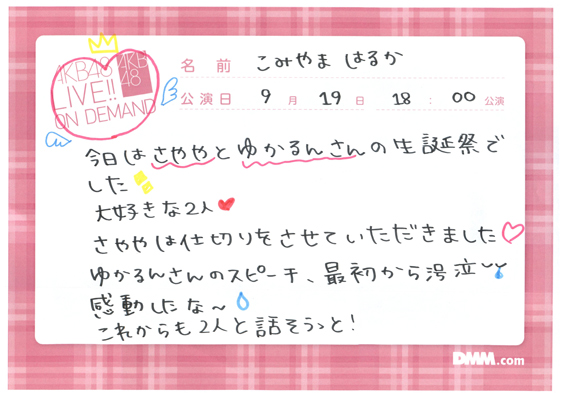 AKB48
AKB
48
LIVE!!
ON DEMAND
名前 こみやま はるか
公演日 9月19日 18:00公演
今日はさややとゆかるんさんの生誕祭で
した
大好きな2人
さややは仕切りをさせていただきました
ゆかるんさんのスピーチ、最初から号泣
感動したな〜
これからも2人と話そうっと!
DMM.com